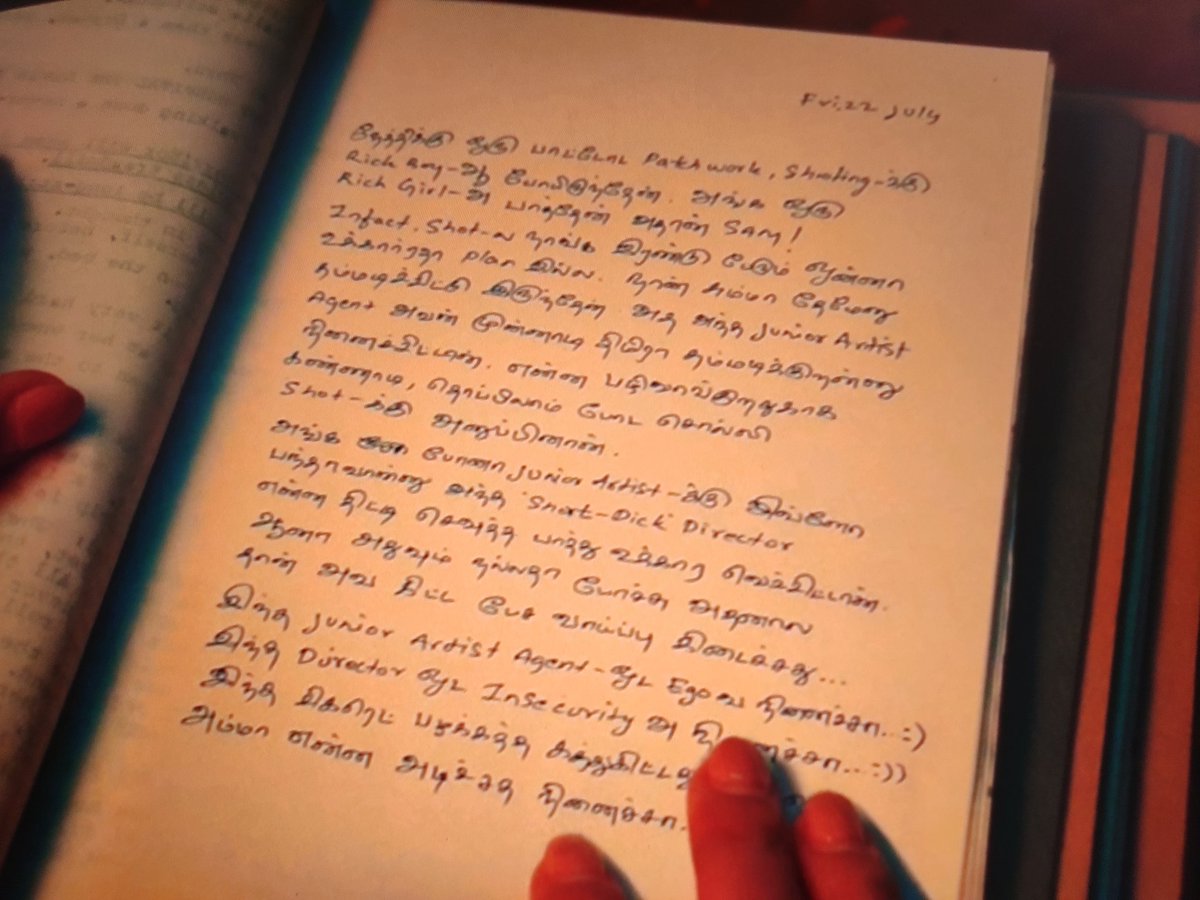 Fri, 22 July
நேத்திக்கு ஒரு பாட்டோட Patchwork, Shooting-க்கு
Rich Boy-ஆ போயிருந்தேன். அங்க ஒரு
Rich Girl-அ பாத்தேன் அதான் Sam!
Infact, Shot-ல நாங்க இரண்டு பேரும் ஒன்னா
உக்கார்ரதா plan இல்ல. நான் சும்மா தேமேனு
தம்மடிச்சிட்டு இருந்தேன் அத அந்த Junior Artist
Agent அவன் முன்னாடி திமிரா தம்மடிக்கிறன்னு
நினைச்சிட்டான். என்ன பழிவாங்குறதுக்காக
கண்ணாடி, தொப்பிலாம் போட சொல்லி
Shot-க்கு அனுப்பினான்.
அங்க போனா Junior Artist-க்கு இவ்ளோ
பந்தாவான்னு அந்த 'Short-Dick' Director
என்ன திட்டி செவுத்த பாத்து உக்கார வெச்சிட்டான்.
ஆனா அதுவும் நல்லதா போச்சு அதனால
தான் அவ கிட்ட பேச வாய்ப்பு கிடைச்சது...
இந்த Junior Artist Agent-ஓட Ego வ நினைச்சா.. :)
இந்த Director ஓட Insecurity அ நினைச்சா.. :))
இந்த சிகரெட் பழக்கத்த கத்துகிட்டது
அம்மா என்ன அடிச்சத நினைச்சா.